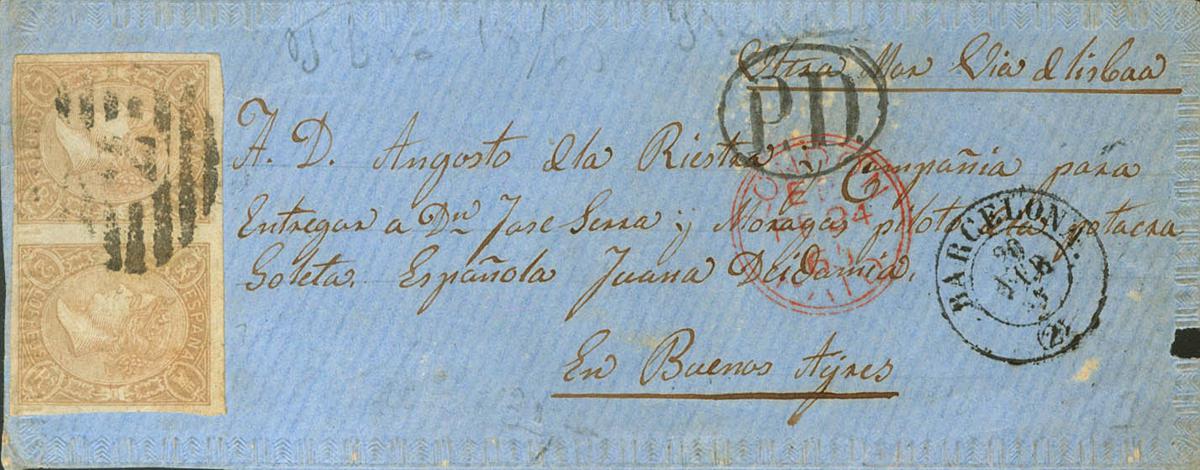 Ultra Mar Via d lisboa
P.D.
A. D. Angosto dela Riestra y Compañia para
Entregar a Dn Jose Serra y Moragas piloto dela potacra
Goleta Española Juana Deidamia.
En Buenos Ayres
BARCELONA.
20
FEB
(2)
LONDON
24
PAID
2 Rs
ESPAÑA